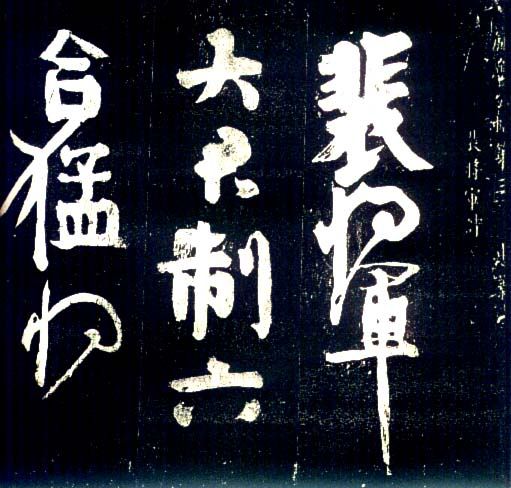 裴將軍詩
裴将軍
大君制六
合猛将